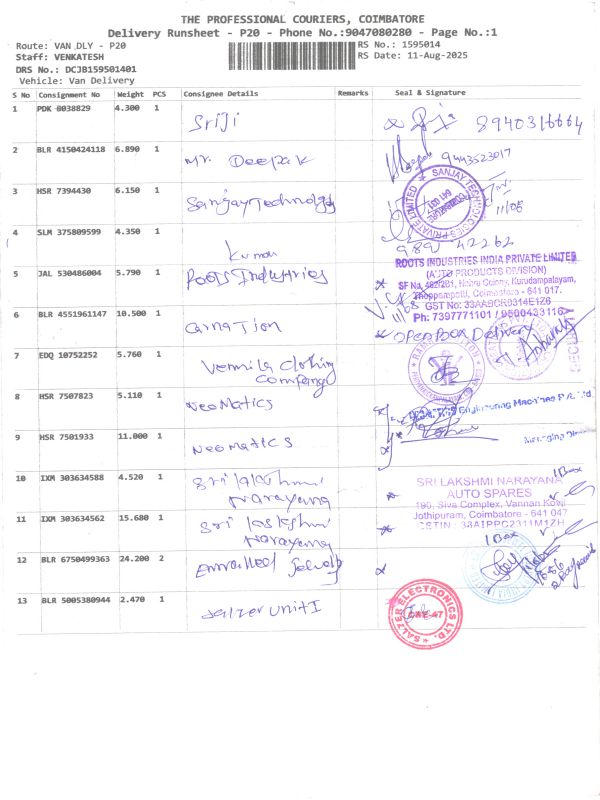 THE PROFESSIONAL COURIERS, COIMBATORE
Delivery Runsheet - P20 - Phone No.:9047080280 - Page No.:1
Route: VAN DLY - P20 RS No.: 1595014
Staff: VENKATESH RS Date: 11-Aug-2025
DRS No.: DCJB159501401
Vehicle: Van Delivery
S No Consignment No Weight PCS Consignee Details Remarks Seal & Signature
1 PDK 8038829 4.300 1 Sriji 8940316664
2 BLR 4150424118 6.890 1 Mr. Deepak 9443523017
3 HSR 7394430 6.150 1 Sanjay Technology 11/08
SANJAY TECHNOLOGIES PRIVATE LIMITED
4 SLM 375809599 4.350 1 Kumar
5 JAL 530486004 5.790 1 Roots Industries
ROOTS INDUSTRIES INDIA PRIVATE LIMITED
(AUTO PRODUCTS DIVISION)
Thoppampatti, Coimbatore - 641 017.
GST No: 33AABCR0314E1Z6
Ph: 7397771101 / 9500433116
11/08
6 BLR 4551961147 10.500 1 Carnation OPEN Box Delivery
7 EDQ 10752252 5.760 1 Vermila clothing
Company
8 HSR 7507823 5.110 1 NeoMatics
Engineering Machines Pvt. Ltd.
9 HSR 7501933 11.000 1 NeoMatics
10 IXM 303634588 4.520 1 Sri lakshmi
Narayana
1 Box
SRI LAKSHMI NARAYANA
AUTO SPARES
190, Siva Complex, Vannan Kovil
Jothipuram, Coimbatore - 641 047
GSTIN : 33AIPPC2311M1ZH
11 IXM 303634562 15.680 1 Sri lakshmi
Narayana
1 Box
12 BLR 6750499363 24.200 2
13 BLR 5005380944 2.470 1 Salzer Unit I
SALZER ELECTRONICS LTD.